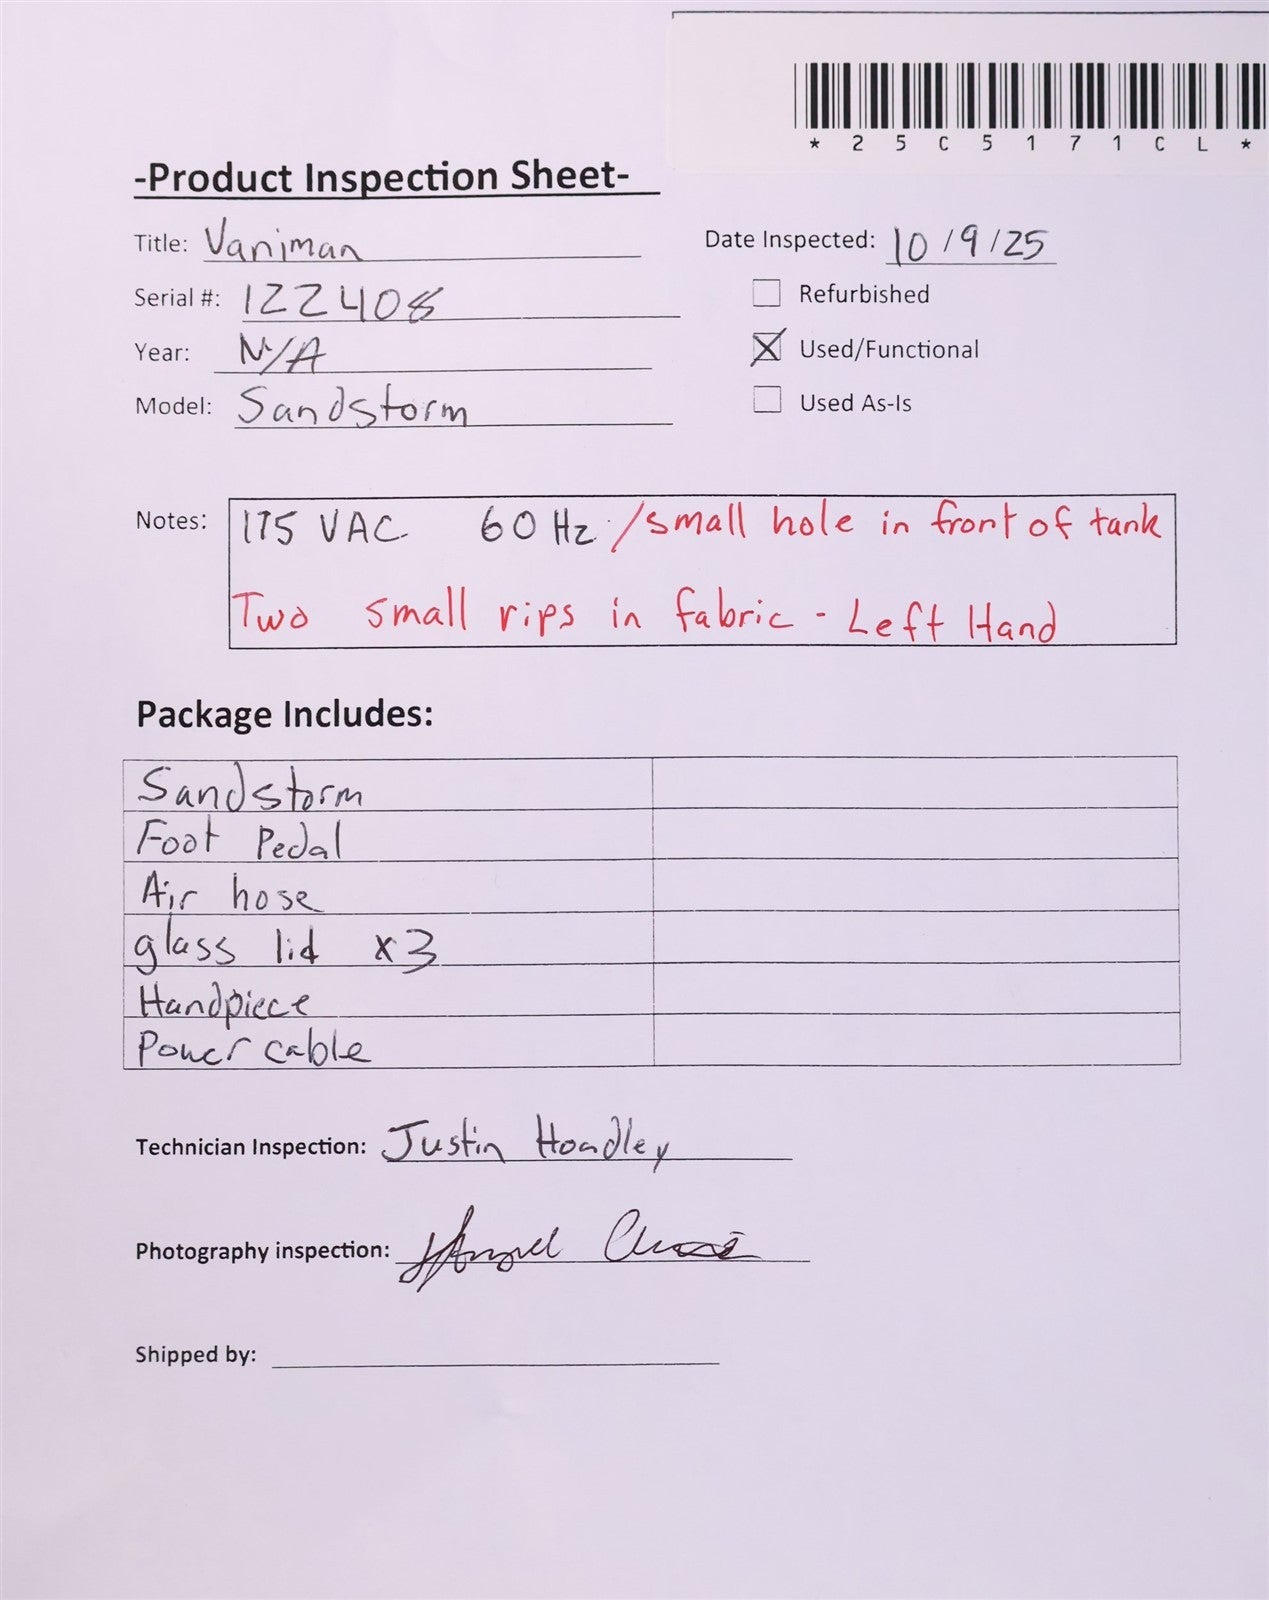 *25C5171CL*
-Product Inspection Sheet-
Title: Vaniman
Date Inspected: 10/9/25
Serial #: 122408
Refurbished
Year: N/A
Used/Functional
Model: Sandstorm
Used As-Is
Notes: 115 VAC 60 Hz /small hole in front of tank
Two small rips in fabric - Left Hand
Package Includes:
Sandstorm
Foot Pedal
Air hose
glass lid x3
Handpiece
Power cable
Technician Inspection: Justin Hoadley
Photography inspection:
Shipped by: